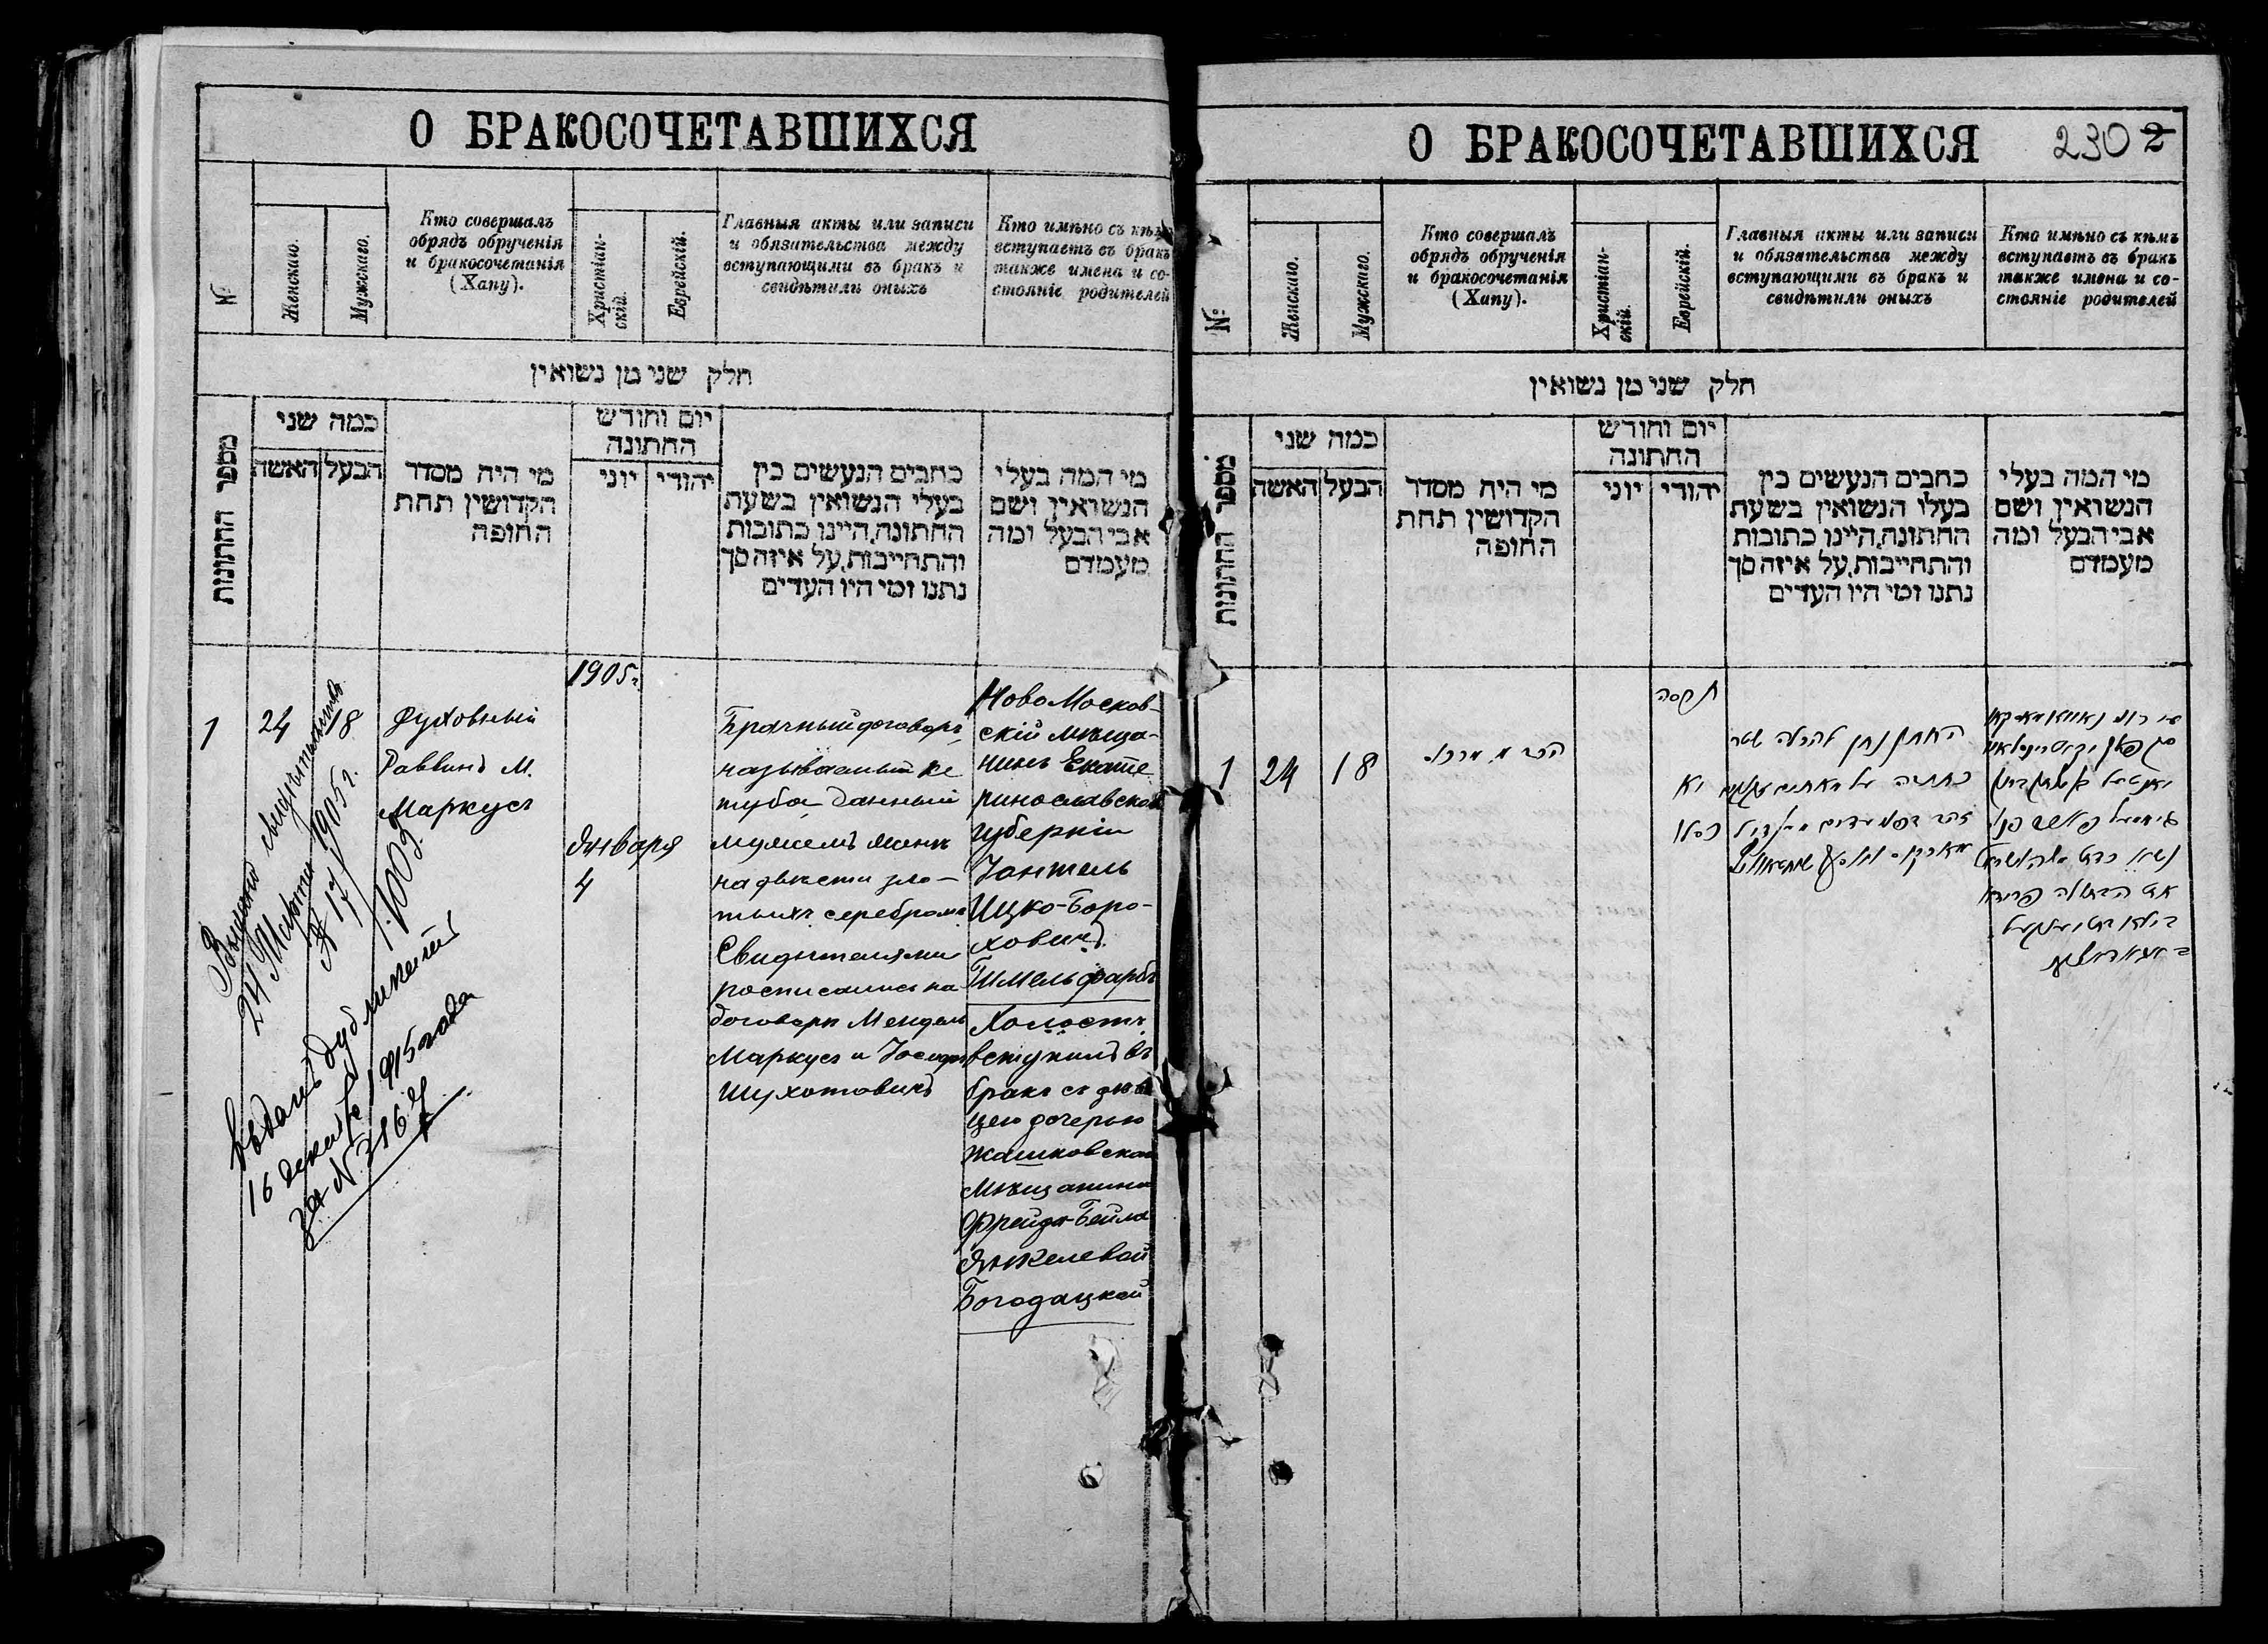 О БРАКОСОЧЕТАВШИХСЯ
№
Женскаго.
Мужскаго.
Кто совершалъ
обрядъ обрученія
и бракосочетанія
(Хапу).
Христіан-
скій.
Еврейскій.
Главныя акты или записи
и обязательства между
вступающими въ бракъ и
свидѣтили оныхъ
Кто имѣно съ кѣмъ
вступаетъ въ бракъ
также имена и со-
стояніе родителей
חלק שני מן נשואין
מספר החתונות
כמה שני
הבעל
האשה
מי היה מסדר
הקדושין תחת
החופה
יום וחודש
החתונה
יהודי
יוני
כתבים הנעשים בין
בעלי הנשואין בשעת
החתונה, היינו כתובות
והתחייבות, על איזה סך
נתנו ומי היו העדים
מי המה בעלי
הנשואין ושם
אבי הבעל ומה
מעמדם
1
24
18
Духовный
Раввинъ М.
Маркусъ
1905г.
Января
4
Брачный договоръ,
называемый ке
туба, данный
мужемъ женѣ
на двѣсти зло-
тыхъ серебромъ
Свидѣтелями
росписались на
договорѣ Мендель
Маркусъ и Іосифъ
Шухотовичъ
НовоМосков-
скій мѣща-
нинъ Екате
ринославской
губерніи
Іантель
Ицко-Боро-
ховичъ
Гимельфарбъ
Холостъ
вступилъ въ
бракъ съ дѣви
цею дочерью
Жашковскаго
мѣщанина
Фрейда-Бейла
Янкелевой
Богодацкой
Выдано свидѣтельство
24 Марта 1905 г.
№ 17
Выданъ дубликатъ
16 декабря 1915 года
за № 216
О БРАКОСОЧЕТАВШИХСЯ
230 2
№
Женскаго.
Мужскаго.
Кто совершалъ
обрядъ обрученія
и бракосочетанія
(Хапу).
Христіан-
скій.
Еврейскій.
Главныя акты или записи
и обязательства между
вступающими въ бракъ и
свидѣтили оныхъ
Кто имѣно съ кѣмъ
вступаетъ въ бракъ
также имена и со-
стояніе родителей
חלק שני מן נשואין
מספר החתונות
כמה שני
הבעל
האשה
מי היה מסדר
הקדושין תחת
החופה
יום וחודש
החתונה
יהודי
יוני
כתבים הנעשים בין
בעלי הנשואין בשעת
החתונה, היינו כתובות
והתחייבות, על איזה סך
נתנו ומי היו העדים
מי המה בעלי
הנשואין ושם
אבי הבעל ומה
מעמדם
1
24
18
הרב מ
תרסה
החתן נתן להכלה שטר
כתובה על מאתים